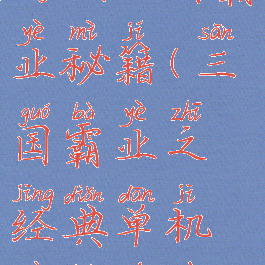 yè mì jí sān
业秘籍(三
guó bà yè zhī
国霸业之
jīng diǎn dān jī
经典单机